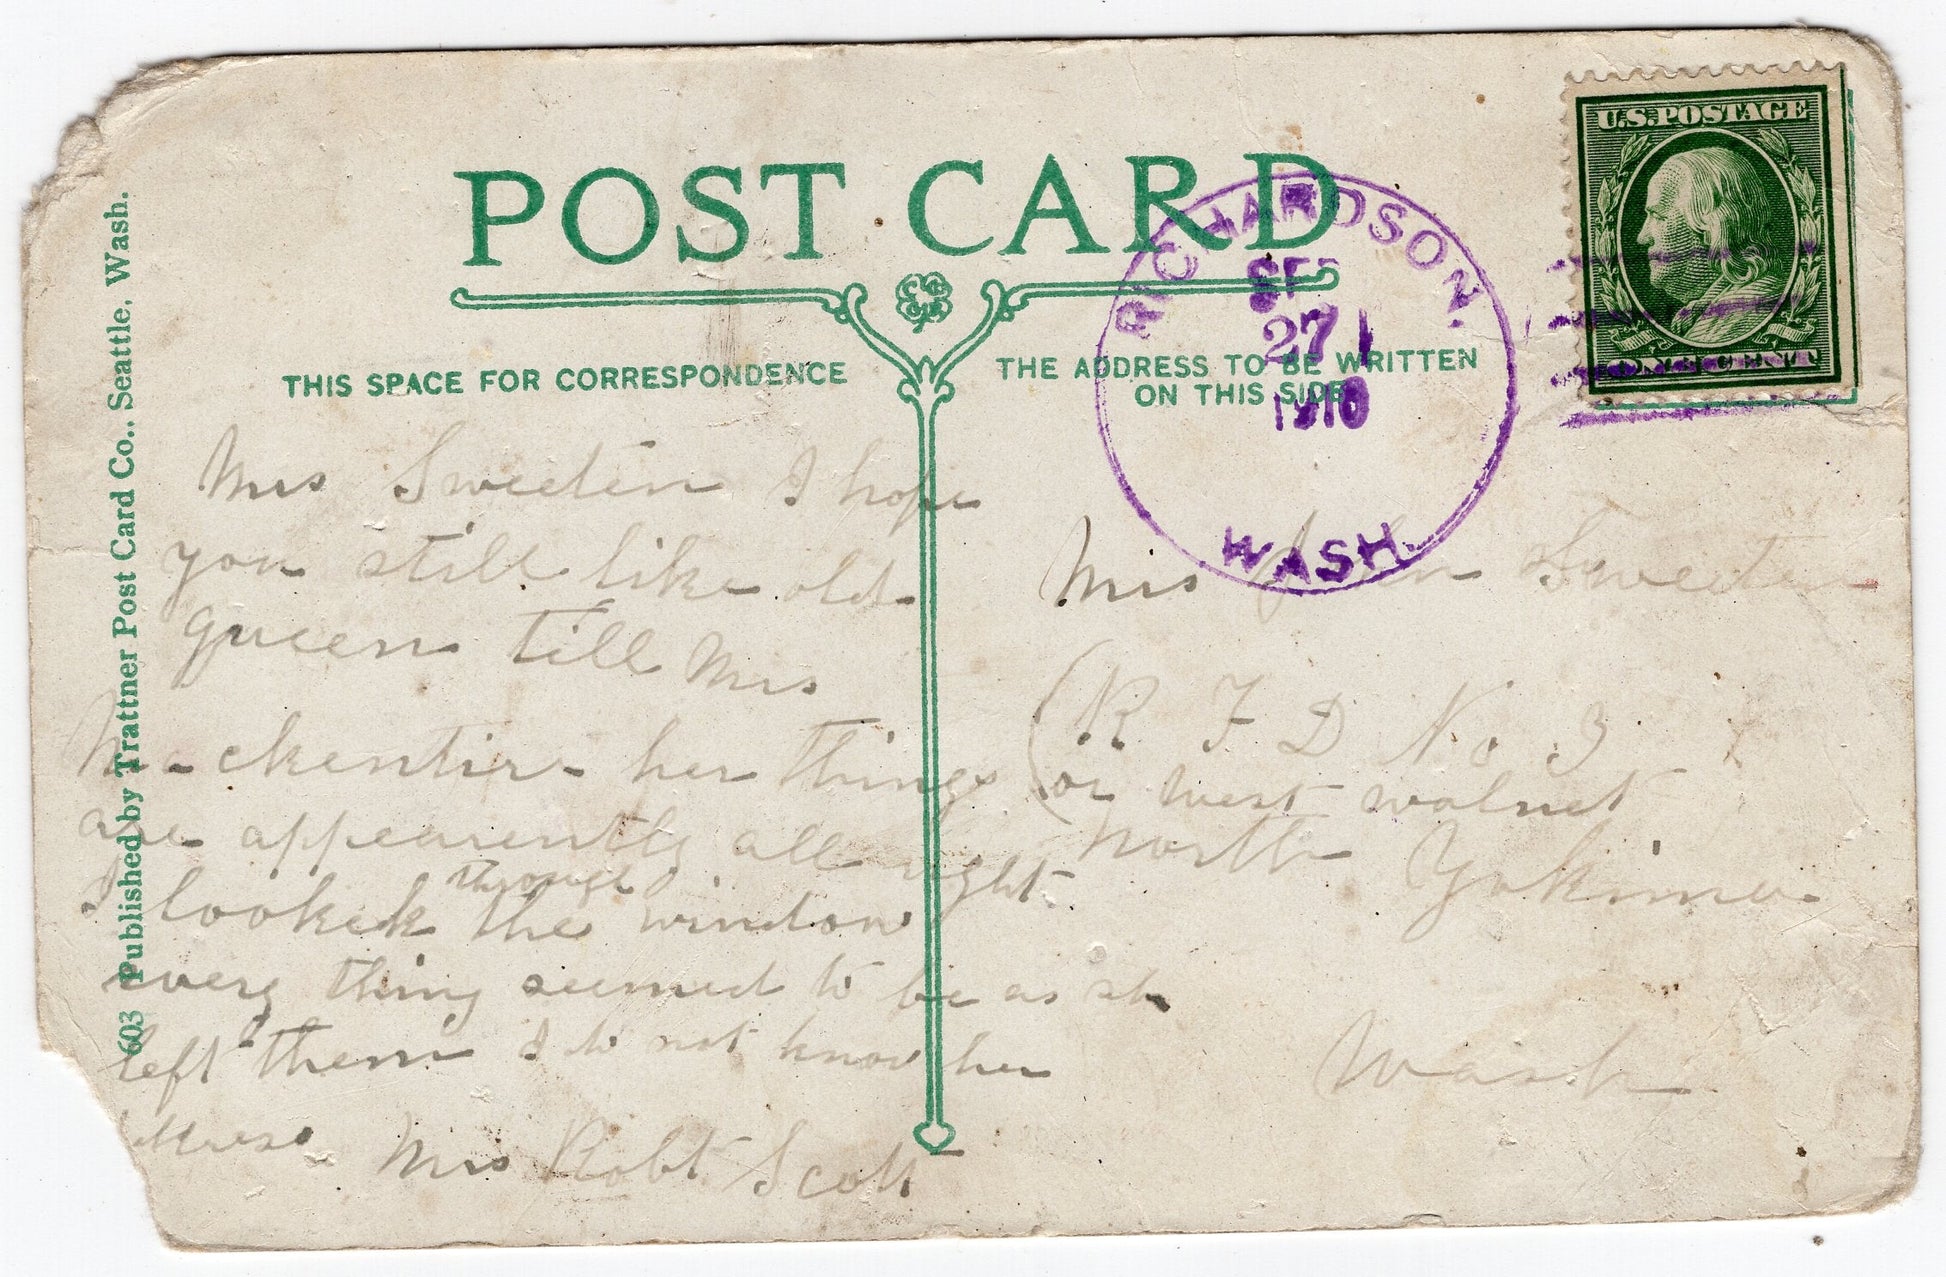 POST CARD
THIS SPACE FOR CORRESPONDENCE
THE ADDRESS TO BE WRITTEN
ON THIS SIDE
U.S. POSTAGE
ONE CENT
RICHARDSON,
SEP
27
1910
WASH.
603 Published by Trattner Post Card Co., Seattle, Wash.
Mrs Sweeten I hope
you still like old
queen till Mrs
her things
are appearently all right
I looked through the window
every thing seemed to be as
left them I do not know her
Mrs Robt Scott
Mrs John Sweeten
(R F D No 3
or west walnut
North Yakima
Wash